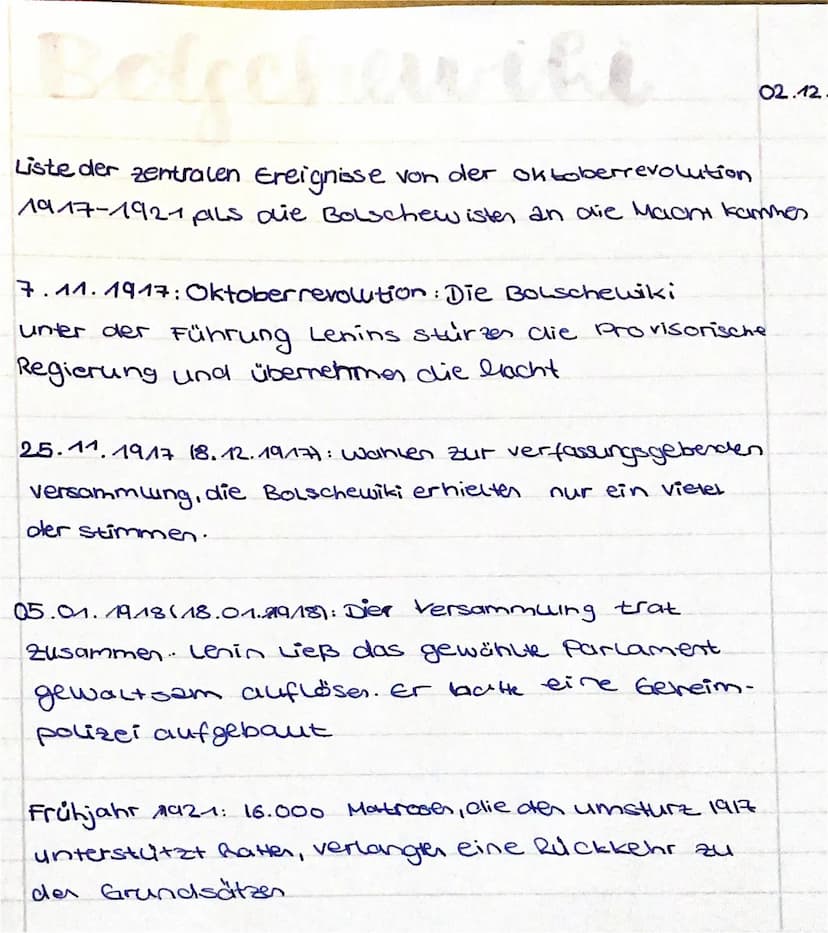 Bolschewiki
02.12.
Liste der zentralen Ereignisse von der Oktoberrevolution
1917-1921 als die Bolschewisten an die Macht kammen
7.11.1917: Oktoberrevolution: Die Bolschewiki
unter der Führung Lenins stürzen die Provisorische
Regierung und übernehmen die Macht
25.11.1917 (8.12.1917): Wahlen zur verfassungsgebenden
Versammlung, die Bolschewiki erhielten nur ein Vietel
der Stimmen.
05.01.1918 (18.01.1918): Die Versammlung trat
zusammen. Lenin ließ das gewählte Parlament
gewaltsam auflösen. Er hatte eine Geheim-
polizei aufgebaut
Frühjahr 1921: 16.000 Matrosen, die den Umsturz 1917
unterstützt hatten, verlangen eine Rückkehr zu
den Grundsätzen